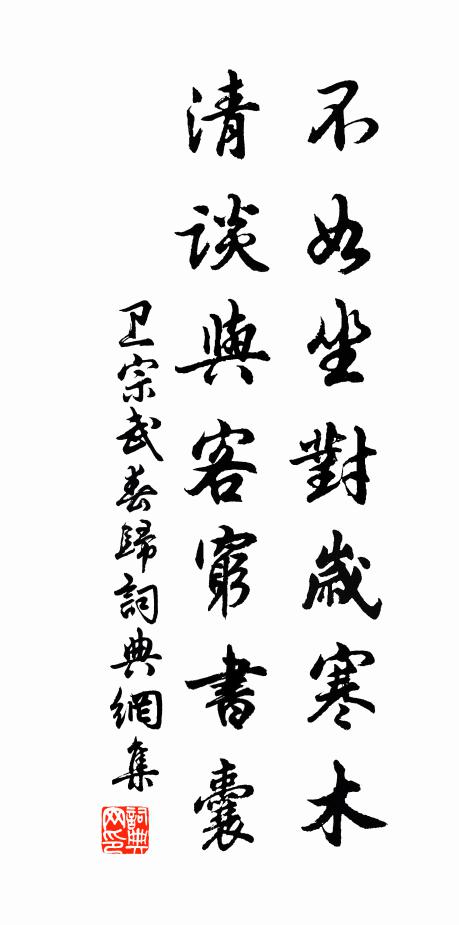 不如坐對歲寒木
清談與客窮書囊
卫宗武春歸詞典網集
詞典网印